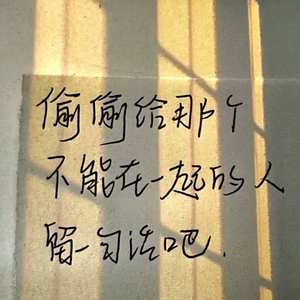 偷偷给那个
不能在一起的人
留一句话吧.